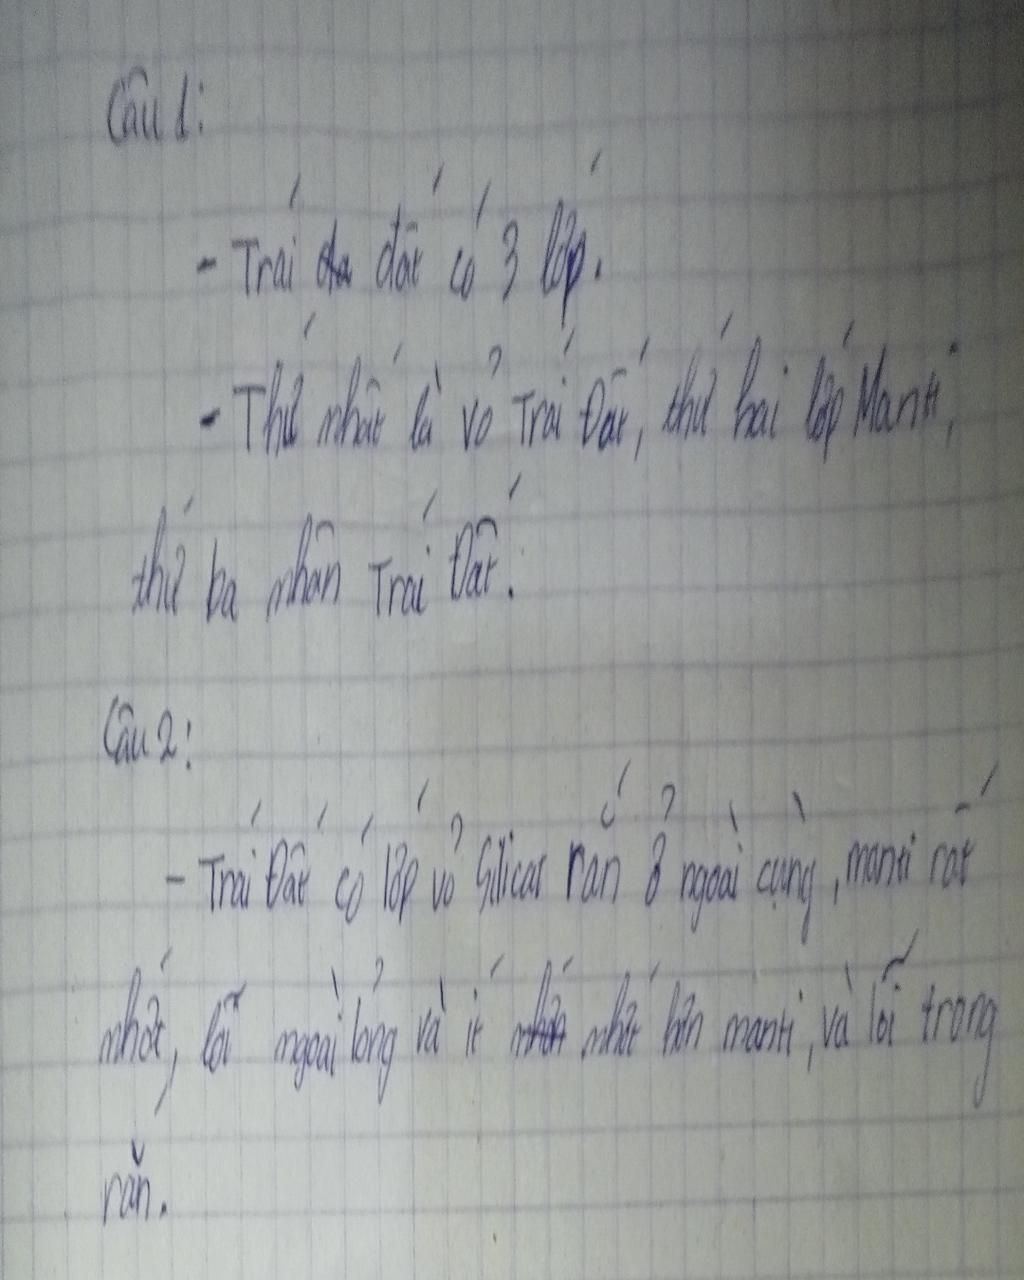 Câu 1:
- Trái đất có 3 lớp.
- Thứ nhất là vỏ Trái Đất, thứ hai lớp Manti,
thứ ba nhân Trái Đất.
Câu 2:
- Trái Đất có lớp vỏ Silicat rắn ở ngoài cùng, manti rất
nhớt, lõi ngoài lỏng và ít nhớt hơn manti, và lõi trong
rắn.